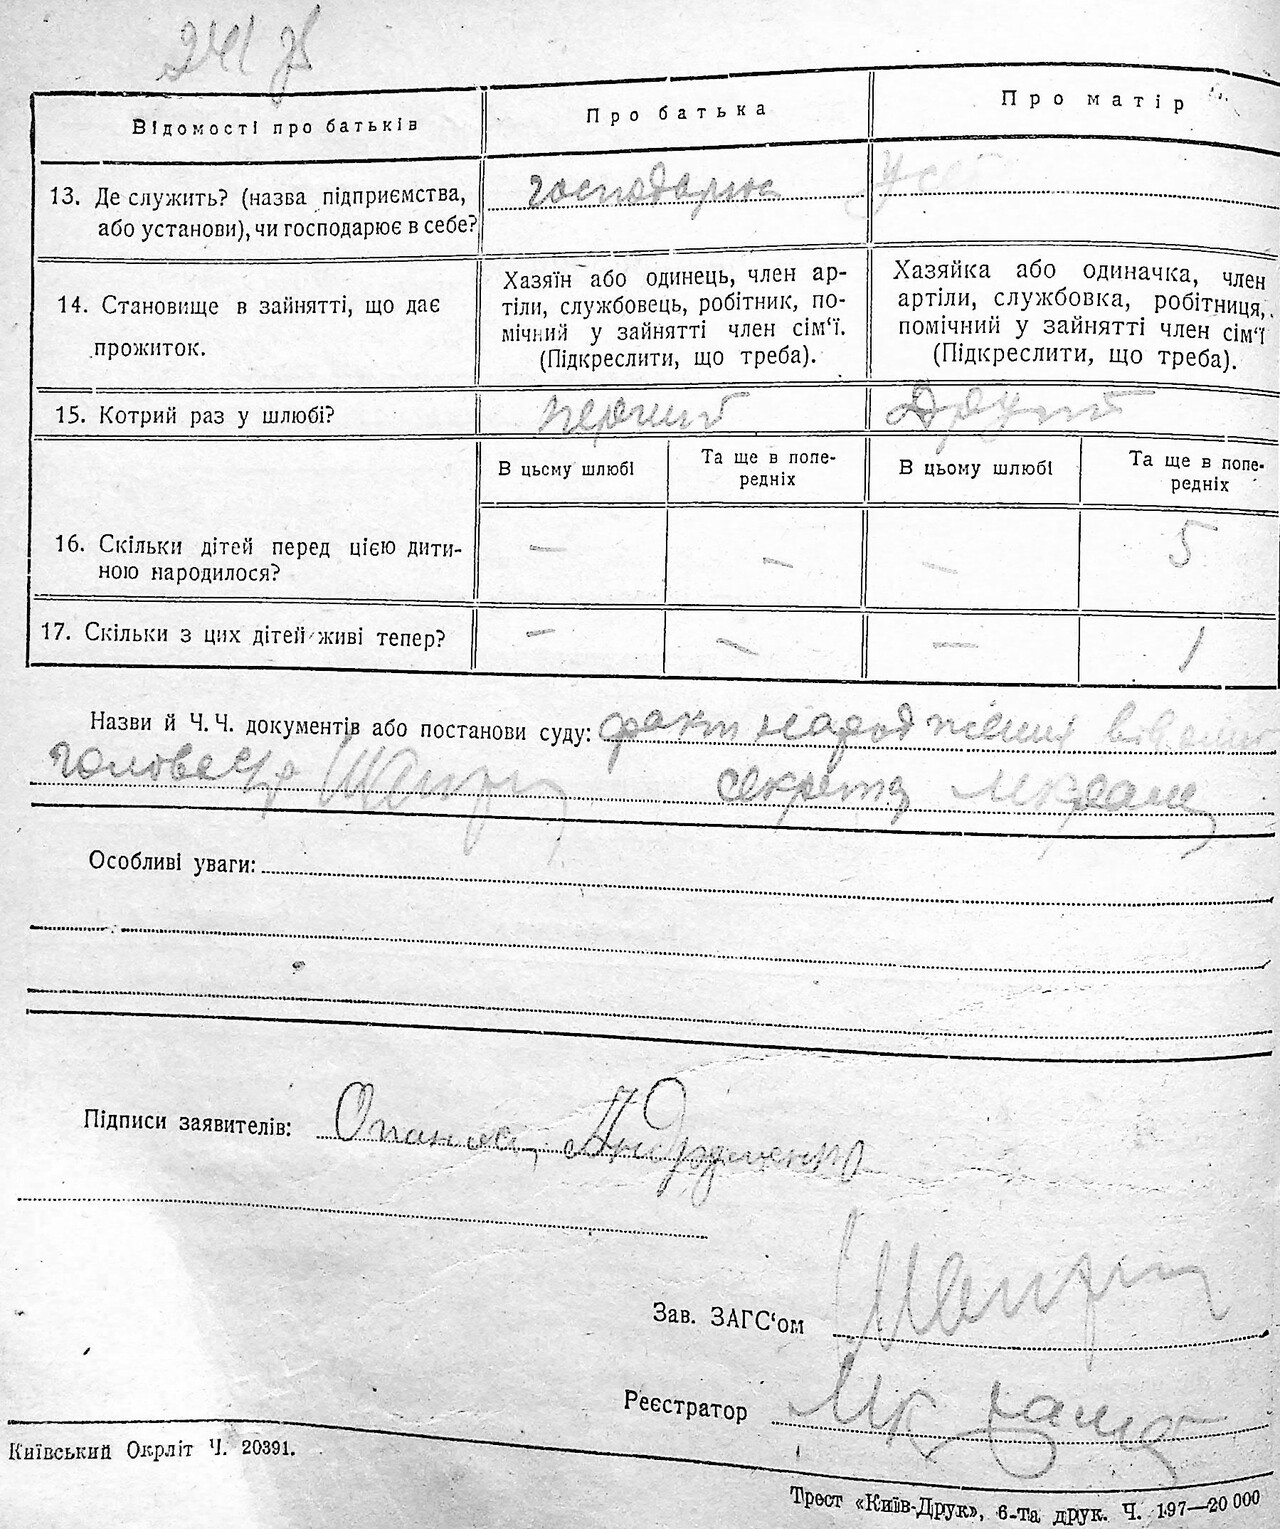 241 зв
Відомості про батьків
Про батька
Про матір
13. Де служить? (назва підприємства, або установи), чи господарює в себе?
господарює
14. Становище в зайнятті, що дає прожиток.
Хазяїн або одинець, член ар-
тіли, службовець, робітник, по-
мічний у зайнятті член сім‘ї.
(Підкреслити, що треба).
Хазяйка або одиначка, член
артіли, службовка, робітниця,
помічний у зайнятті член сім‘ї
(Підкреслити, що треба).
15. Котрий раз у шлюбі?
перший
Другий
В цьому шлюбі
Та ще в попе-
редніх
В цьому шлюбі
Та ще в попе-
редніх
16. Скільки дітей перед цією дити-
ною народилося?
—
—
—
5
17. Скільки з цих дітей живі тепер?
—
—
—
1
Назви й Ч.Ч. документів або постанови суду: факт народження
голова с/р секретар
Особливі уваги:
Підписи заявителів: Опанас
Зав. ЗАГС‘ом
Реєстратор
Київський Окрліт Ч. 20391.
Трест «Київ-Друк», 6-та друк. Ч. 197—20 000